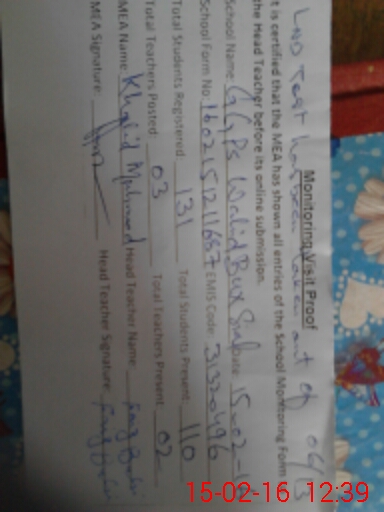 LND Test has been taken out of 06/13
Monitoring Visit Proof
It is certified that the MEA has shown all entries of the School Monitoring Form
the Head Teacher before its online submission.
School Name: GGPS Walid Bux Sial Date: 15-02-16
School Form No: 160215121168 EMIS Code: 31320496
Total Students Registered: 131 Total Students Present: 110
Total Teachers Posted: 03 Total Teachers Present: 02
MEA Name: Khalid Mahmood Head Teacher Name:
MEA Signature: Head Teacher Signature:
15-02-16 12:39